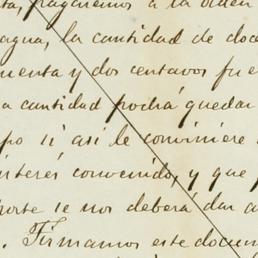 ta, pagaremos á la orden
agua, la cantidad de doce
uenta y dos centavos fue
a cantidad podrá quedar
po si así le conviniere
interés convenido, y que
porte se nos deberá dar a
. Firmamos este docum